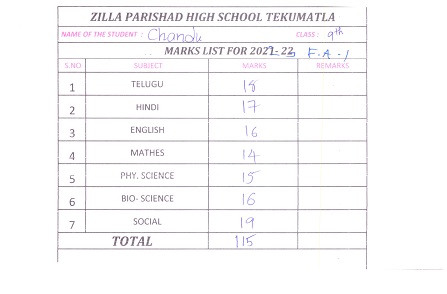 ZILLA PARISHAD HIGH SCHOOL TEKUMATLA
NAME OF THE STUDENT : Chandu CLASS : 9th
MARKS LIST FOR 2021-22 F.A-1
S.NO SUBJECT MARKS REMARKS
1 TELUGU 18
2 HINDI 17
3 ENGLISH 16
4 MATHES 14
5 PHY. SCIENCE 15
6 BIO- SCIENCE 16
7 SOCIAL 19
TOTAL 115